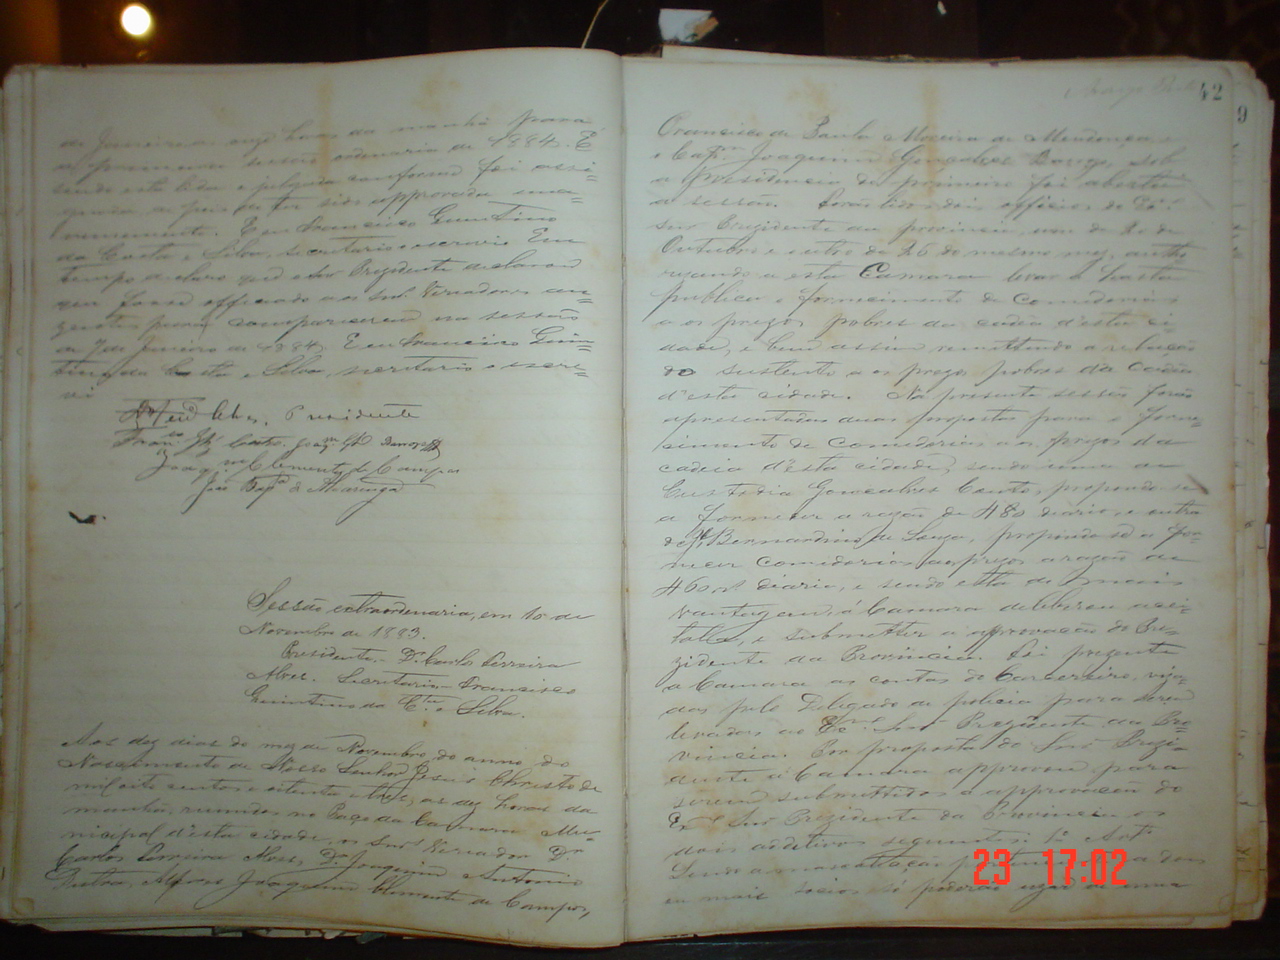 de Janeiro as onze horas da manhã para
a primeira sessão ordinaria de 1884. E
sendo esta lida e julgada conforme foi assi=
gnada depois de ter sido approvada una=
nimemente. Eu Francisco Quintino
da Costa e Silva, secretario o escrevi. Em
tempo declaro que o Snr Prezidente declarou
que fosse officiado aos Snrs Vereadores au=
zentes para comparecerem na sessão
de 7 de Janeiro de 1884. E eu Francisco Quin=
tino da Costa e Silva, secretario o escre=
vi
Presidente
Joaqm Clemente de Campos
João Bapta de Alvarenga
Sessão extraordinaria, em 10 de
Novembro de 1883.
Presidente, Dr Carlos Ferreira
Alves. Secretario Francisco
Quintino da Cta e Silva.
Aos dez dias do mez de Novembro do anno do
Nascimento de Nosso Senhor Jesus Christo de
mil oito centos e oitenta e tres, as dez horas da
manhã, reunidos no Paço da Camara Mu=
nicipal d'esta cidade, os Snrs Vereadores Dr
Carlos Ferreira Alves, Dr Joaquim Antonio
Dutra, Alferes Joaquim Clemente de Campos,
42
9
Francisco de Paula Moreira de Mendonça
e Capm Joaquim Gonçalves Borges, sob
a presidencia do primeiro foi aberta
a sessão. Forão lidos dois officios do Exmo
Snr Prezidente da provincia, um de 20 de
Outubro e outro de 26 do mesmo mez, autho
rizando a esta Camara levar a hasta
publica o fornecimento de comedorias
a os prezos pobres da cadêa d'esta ci
dade, e bem assim remettendo a relação
do sustento a os prezos pobres da Cadêa
d'esta cidade. Na presente sessão forão
apresentadas duas propostas para o forne=
cimento de comedorias aos prezos da
cadeia d'esta cidade, sendo uma de
Custodia Gonçalves Couto, propondo-se
a fornecer a razão de 480 diario, e outra
de Bernardino de Souza, propondo-se a for=
necer comidorias aos prezos a razão de
460 rs diario, e sendo esta de mais
vantagem, á Camara deliberou acei=
tal-a, e submetter a approvação do Pre=
zidente da Provincia. Foi prezente
a Camara as contas do Carcereiro, viza=
das pelo Delegado de policia para serem
levadas ao Exmo Snr Prezidente da Pro=
vincia. Por proposta do Snr Prezi=
dente a Camara approvou para
serem submettidos a approvação do
Exmo Snr Prezidente da Provincia os
dois additivos seguintes: 1º Art.
Sendo a
ou mais socios só poderá uzar de uma
23 17:02